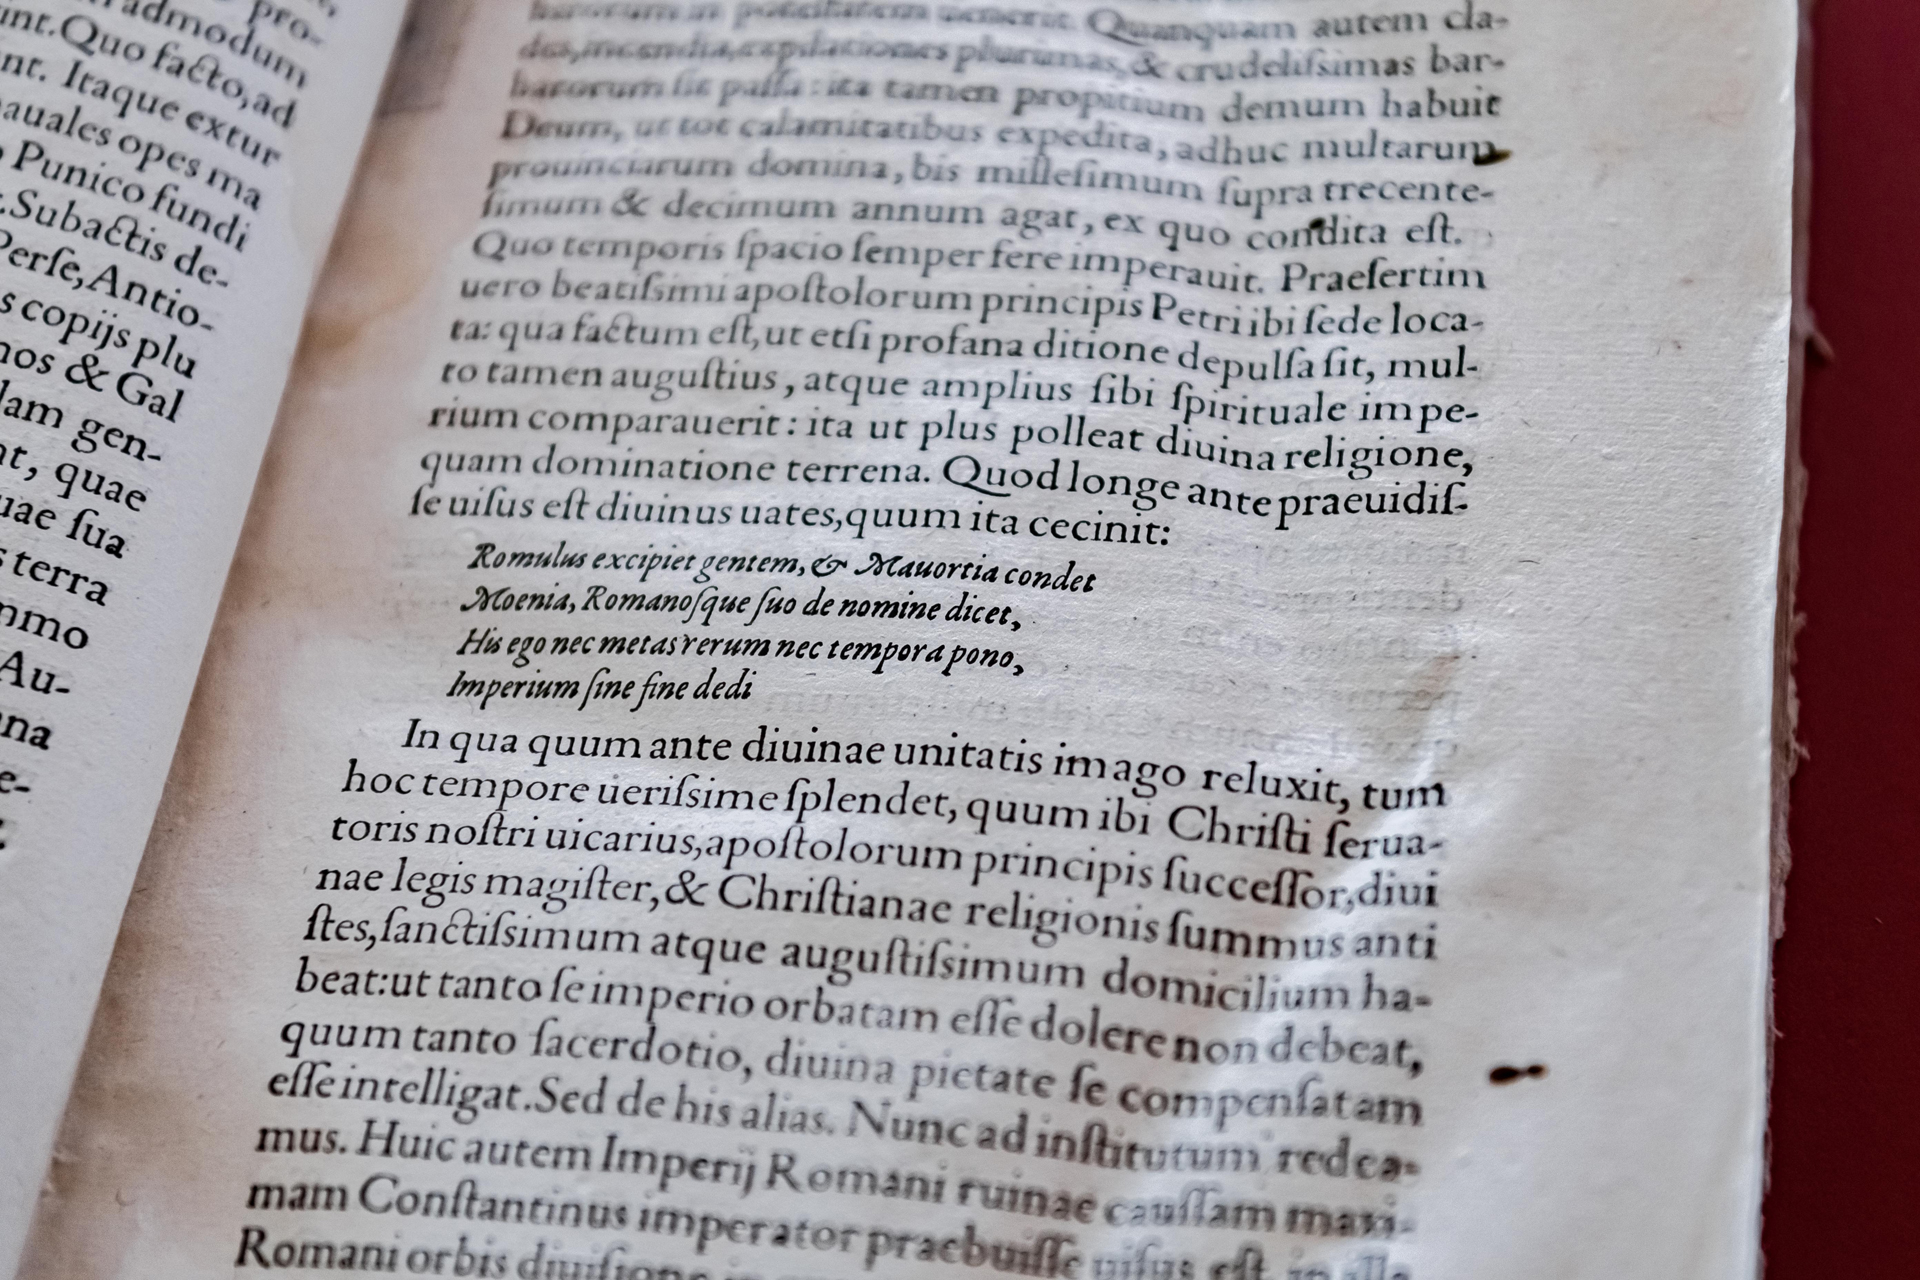 pro-
admodum
unt. Quo facto, ad
nt. Itaque extur
auales opes ma
Punico fundi
. Subactis de-
Perſe, Antio-
s copijs plu
nos & Gal
dam gen-
nt, quae
uae ſua
s terra
mmo
Au-
na
e-
harorum in poteſtatem uenerit. Quanquam autem cla-
des, incendia, expilationes plurimas, & crudeliſsimas bar-
barorum ſit paſſa: ita tamen propitium demum habuit
Deum, ut tot calamitatibus expedita, adhuc multarum
prouinciarum domina, bis milleſimum ſupra trecente-
ſimum & decimum annum agat, ex quo condita eſt.
Quo temporis ſpacio ſemper fere imperauit. Praeſertim
uero beatiſsimi apoſtolorum principis Petri ibi ſede loca-
ta: qua factum eſt, ut etſi profana ditione depulſa ſit, mul-
to tamen auguſtius, atque amplius ſibi ſpirituale impe-
rium comparauerit: ita ut plus polleat diuina religione,
quam dominatione terrena. Quod longe ante praeuidiſ-
ſe uiſus eſt diuinus uates, quum ita cecinit:
Romulus excipiet gentem, & Mauortia condet
Moenia, Romanoſque ſuo de nomine dicet,
His ego nec metas rerum nec tempora pono,
Imperium ſine fine dedi
In qua quum ante diuinae unitatis imago reluxit, tum
hoc tempore ueriſsime ſplendet, quum ibi Chriſti ſerua-
toris noſtri uicarius, apoſtolorum principis ſucceſſor, diui
nae legis magiſter, & Chriſtianae religionis ſummus anti
ſtes, ſanctiſsimum atque auguſtiſsimum domicilium ha-
beat: ut tanto ſe imperio orbatam eſſe dolere non debeat,
quum tanto ſacerdotio, diuina pietate ſe compenſatam
eſſe intelligat. Sed de his alias. Nunc ad inſtitutum redea-
mus. Huic autem Imperij Romani ruinae cauſſam maxi-
mam Conſtantinus imperator praebuiſſe uiſus eſt, in illa
Romani orbis diuiſione